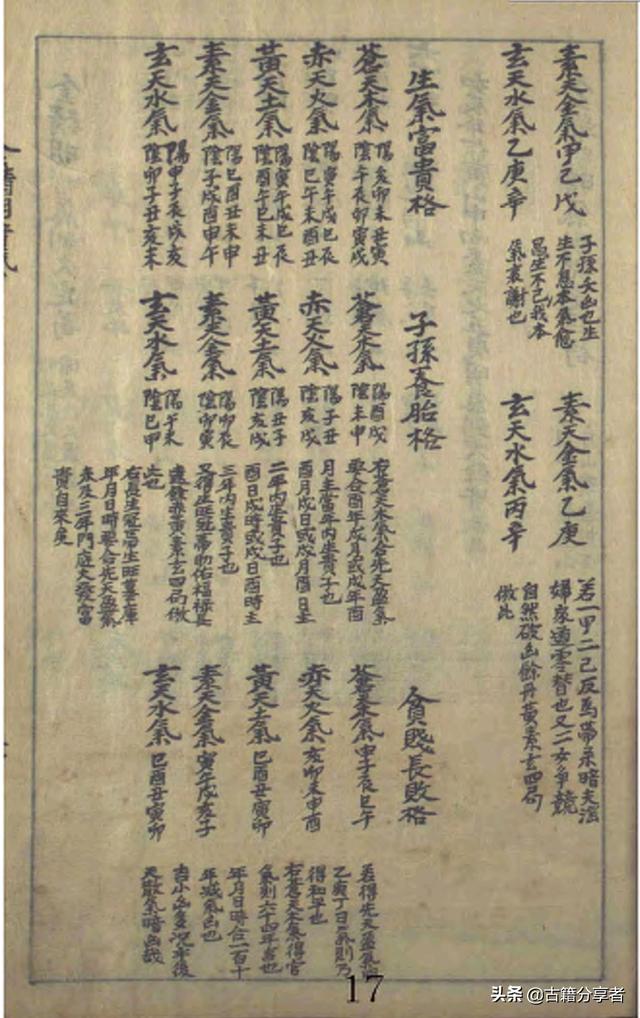 素天金氣甲己戊
玄天水氣乙庚辛
子孫
生不息本氣愈
思生不已我本
氣衰謝也
素天金氣乙庚
玄天水氣丙辛
若一甲二己反為
婦家遭零替也又二女爭競
自然破凶餘丹黃素玄四局
倣此
生氣富貴格
蒼天木氣 陽亥卯未丑寅
陰午辰卯寅戌
赤天火氣 陽寅午戌巳辰
陰巳午未酉丑
黃天土氣 陽寅午戌巳辰
陰酉午巳未丑
素天金氣 陽巳酉丑未申
陰子戌酉申午
玄天水氣 陽申子辰戌亥
陰卯子丑亥未
子孫養胎格
蒼天木氣 陽酉戌
陰未申
赤天火氣 陽子丑
陰亥戌
黃天土氣 陽丑子
陰亥戌
素天金氣 陽卯辰
陰卯寅
玄天水氣 陽午未
陰巳申
右蒼天木氣合先天盈氣
要合酉年戌月或戌年酉
月主當年內生貴子也
酉月戌日或戌月酉日主
二年內生貴子也
酉日戌時或戌日酉時主
三年內生貴子也
又得生旺冠帶助佑福祿長
遠餘赤黃素玄四局倣
此也
右長生冠帶生旺墓庫
年月日時要合先天盈氣
未及三年門庭大發富
貴自來度
貧賤長敗格
蒼天木氣 申子辰巳午
赤天火氣 亥卯未申酉
黃天土氣 巳酉丑寅卯
素天金氣 寅午戌亥子
玄天水氣 巳酉丑寅卯
若得先天盈氣
乙庚丁日氣則乃
得和平也
右蒼天木氣得官
氣則六十四年吉也
年月日時合一百十
年減氣凶也
吉小凶多沈卒後
天散氣暗凶哉
17
头条 @古籍分享者